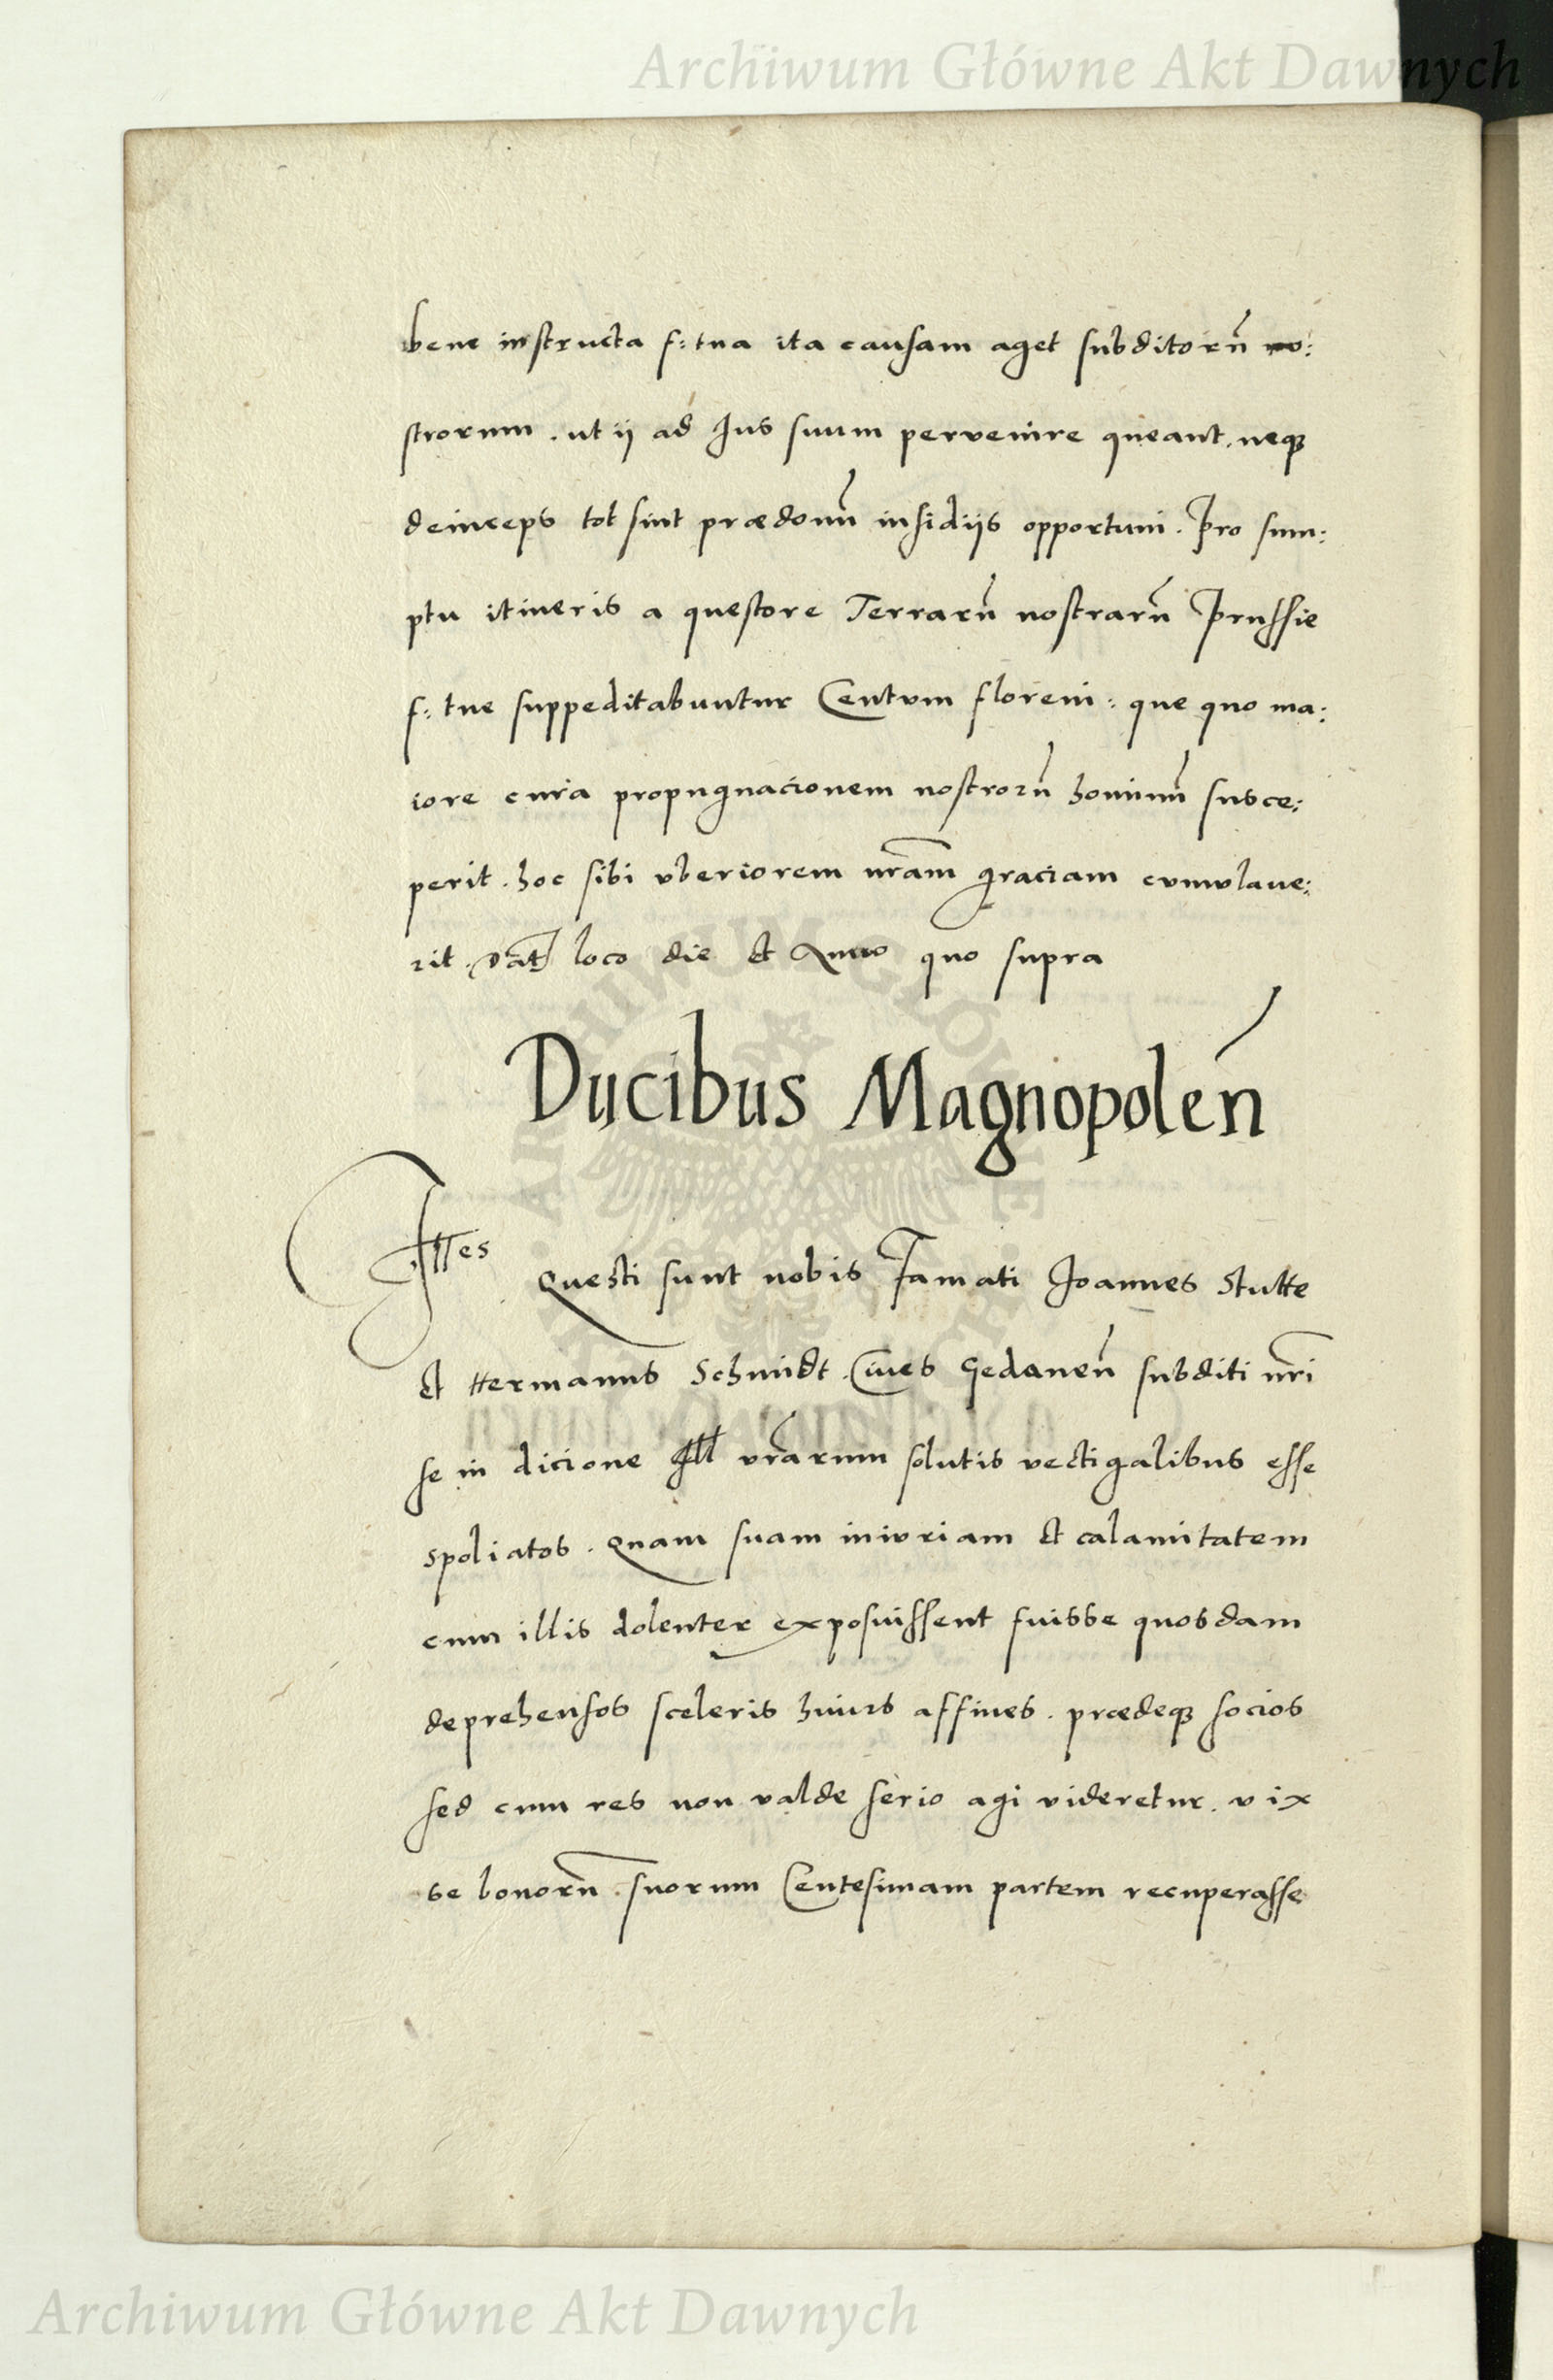 Archiwum Główne Akt Dawnych
bene instructa f: tua ita causam aget subditorũ no:
strorum . ut ij ad Jus suum pervenire queant . neqꝫ
deinceps tot sint prædonũ insidijs opportuni . Pro sum:
ptu itineris a questore Terrarũ nostrarũ Prussie
f: tue suppeditabuntur Centum floreni : que quo ma:
iore cura propugnacionem nostrorũ hominũ susce:
perit . hoc sibi uberiorem nrãm graciam cumulaue:
rit . Dat loco die et Anno quo supra
Ducibus Magnopoleń
Illes
Questi sunt nobis Famati Joannes Stutte
et Hermannus Schmidt . Ciues Gedaneñ subditi nrĩ
se in dicione Ill vrãrum solutis vectigalibus esse
spoliatos . Quam suam iniuriam et calamitatem
cum illis dolenter exposuissent fuisse quosdam
deprehensos sceleris huius affines . prædeqꝫ socios
sed cum res non valde serio agi videretur . vix
se bonorũ . suorum Centesimam partem recuperasse
Archiwum Główne Akt Dawnych